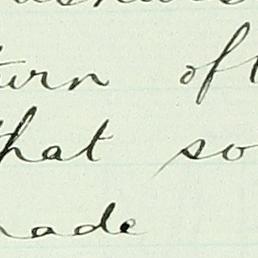 turn oft
that so
made